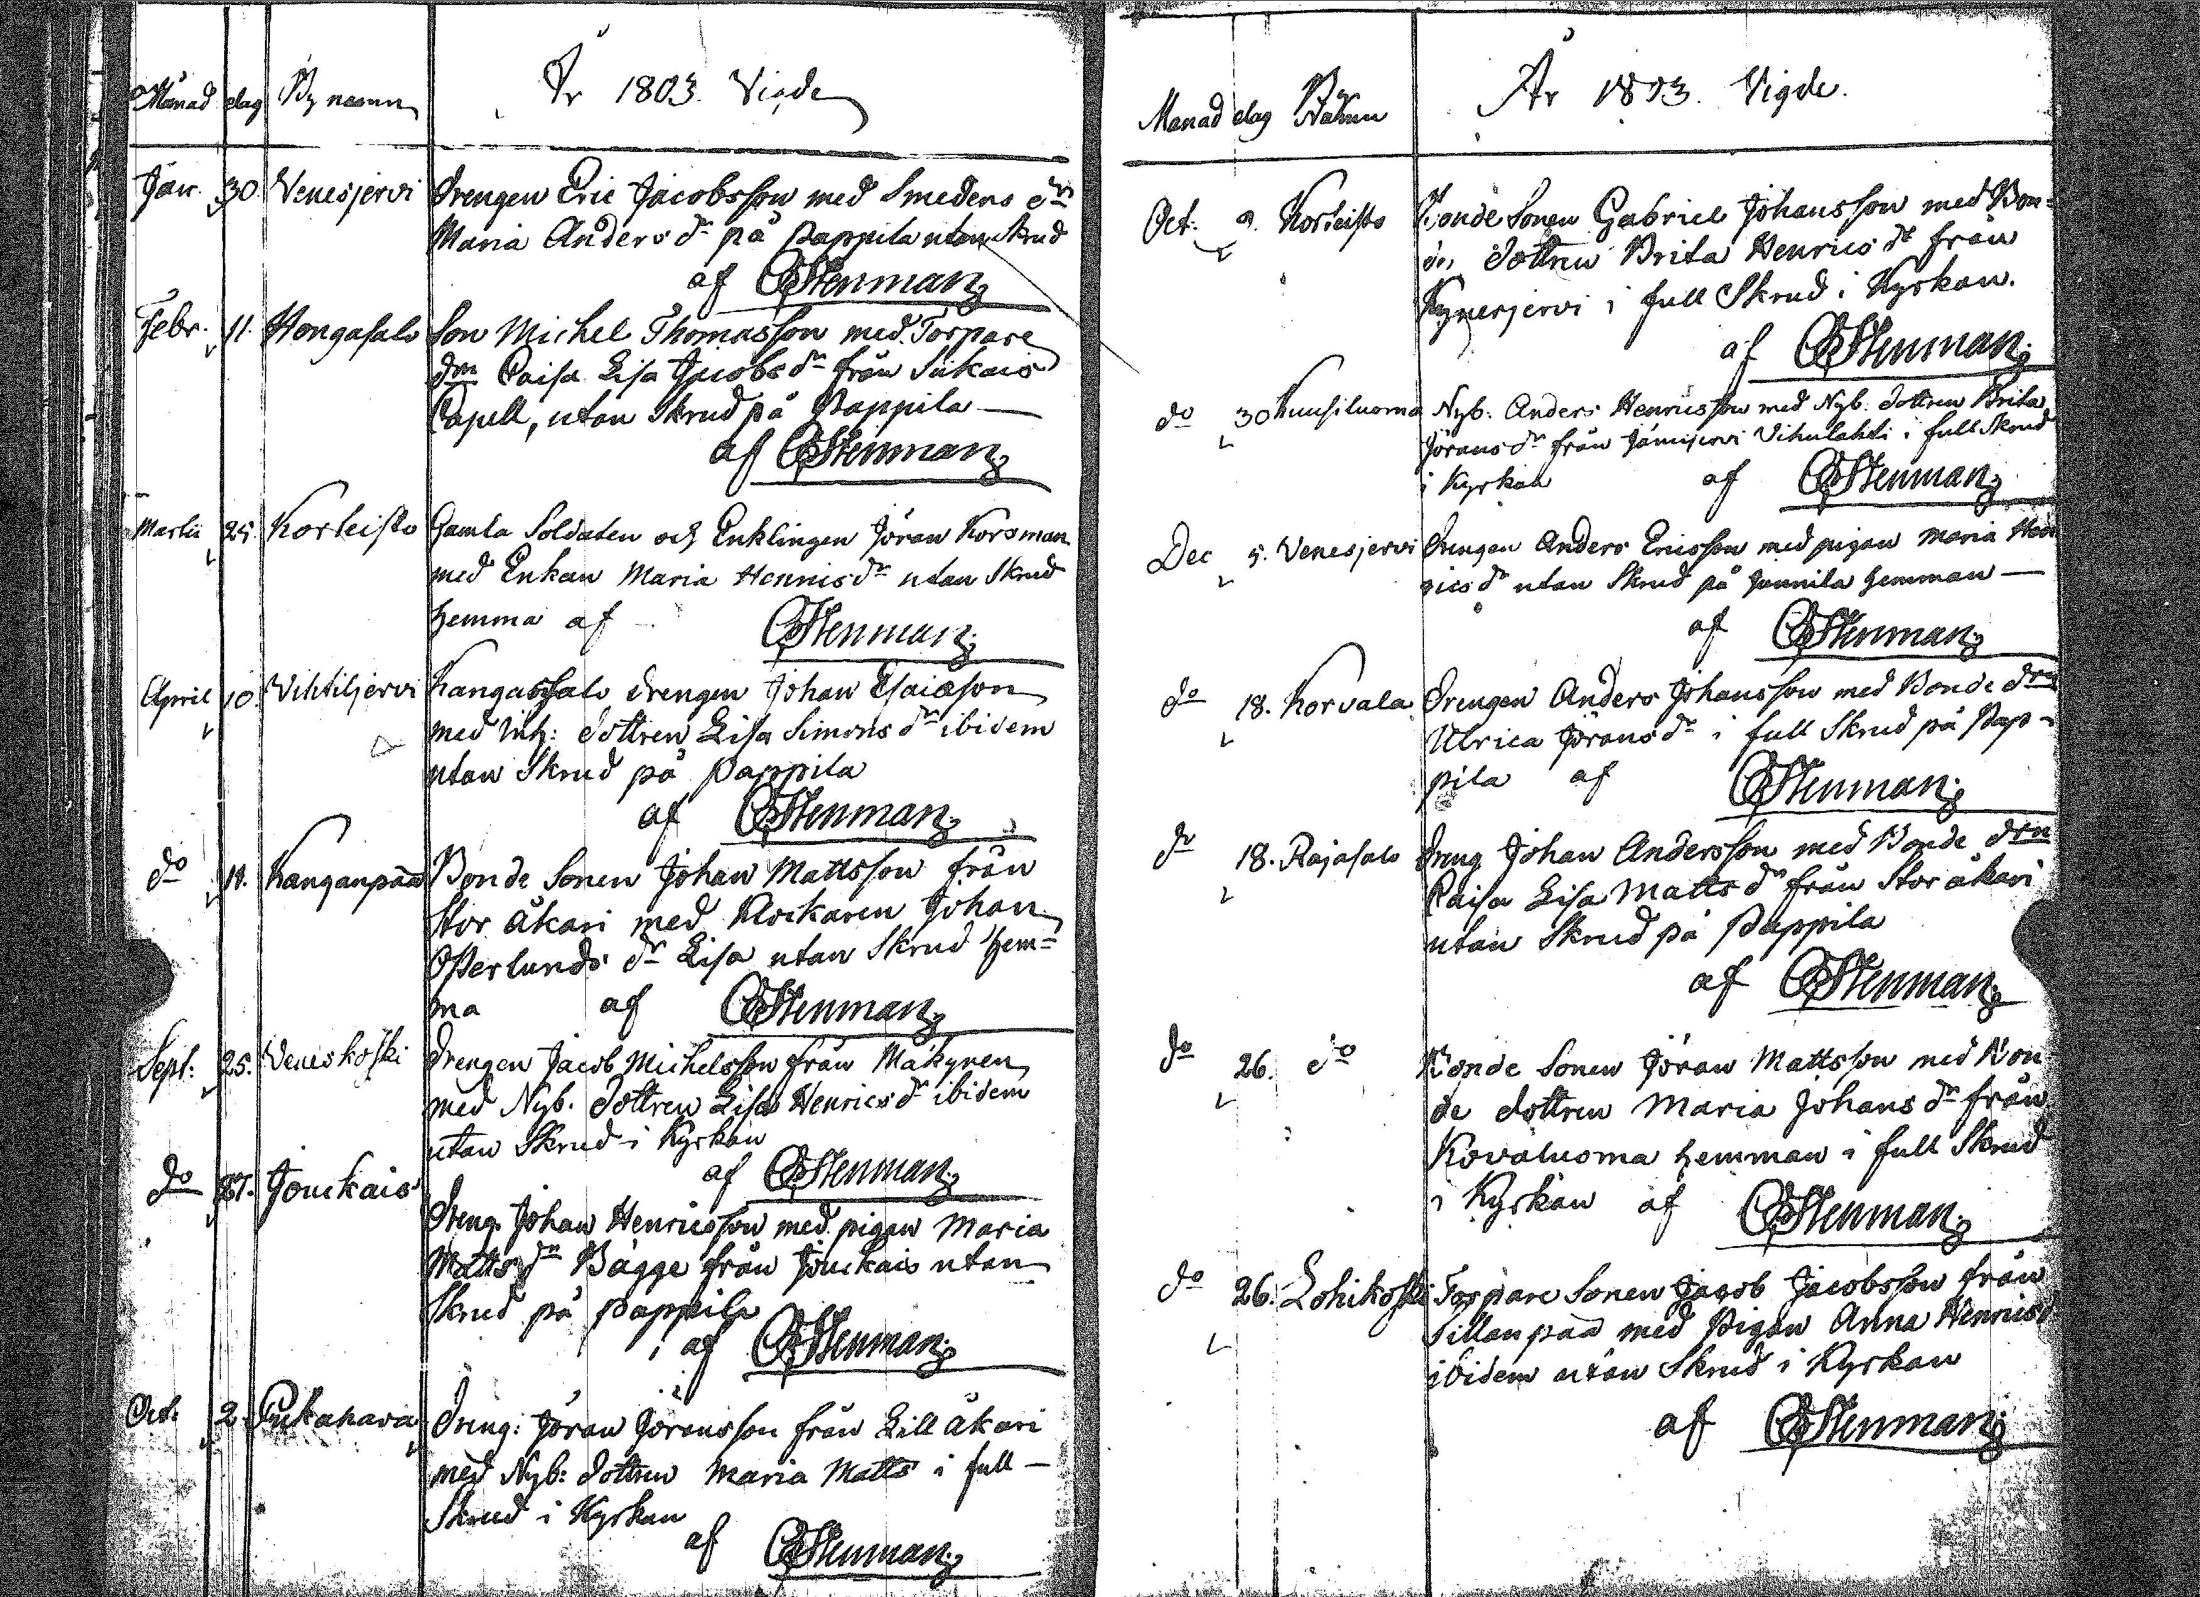 Månad dag By namn År 1803. Vigde
Jan. 30. Venesjervi Drengen Eric Jacobsson med Smedens dr
Maria Anders dr på Pappila utan Skrud
af CGStenman
Febr. 11. Hongasalo Son Michel Thomasson med Torpare
drn Caisa Lisa Jacobs dr från Siikais
Capell, utan Skrud på Pappila —
af CGStenman
Martii 25. Korteisto Gamla Soldaten och Enklingen Jöran Korsman
med Enkan Maria Henrics dr utan Skrud
hemma af CGStenman
April 10. Vihtiljervi Kangassalo drengen Johan Esaiæson
med dottren Lisa Simons dr ibidem
utan Skrud på Pappila
af CGStenman
do Kanganpää Bonde Sonen Johan Mattsson från
Stor åkari med Klockaren Johan
Österlunds dr Lisa utan Skrud hem=
ma af CGStenman
Sept: 25. Veneskoski Drengen Jacob Michelsson från Mäkynen
med Nyb. dottren Lisa Henrics dr ibidem
utan Skrud i Kyrkan
af CGStenman
do 27. Jouckais Dreng. Johan Henricsson med pigan Maria
Matts dr Bagge från Jouckais utan
Skrud på Pappila
af CGStenman
Oct. 2. Dreng: Jöran Jöransson från Lill åkari
med Nyb: dottren Maria Matts i full —
Skrud i Kyrkan
af CGStenman
Månad dag By Namn År 1803. Vigde.
Oct: 9. Korteisto Bonde Sonen Gabriel Johansson med Bon=
de dottren Brita Henrics dr från
Kynerjervi i full Skrud i Kyrkan.
af CGStenman
do 30 Kuusiluoma Nyb: Anders Henricsson med Nyb: dottren Brita
Jörans dr från Jämijervi Vihulahti i full Skrud
i Kyrkan af CGStenman
Dec 5. Venesjervi Drengen Anders Ericsson med pigan Maria Hen
rics dr utan Skrud på Jannila hemman —
af CGStenman
do 18. Korvala Drengen Anders Johansson med Bonde drn
Ulrica Jörans dr i full Skrud på Pap-
pila af CGStenman
do 18. Rajasalo Dreng Johan Andersson med Bonde drn
Caisa Lisa Matts dr från Stor åkari
utan Skrud på Pappila
af CGStenman
do 26. do Bonde Sonen Jöran Mattsson med Bon
de dottren Maria Johans dr från
Kovaluoma hemman i full Skrud
i Kyrkan af CGStenman
do 26. Lohikoski Torpare Sonen Jacob Jacobsson från
Sillanpää med Pigan Anna Henrics d
ibidem utan Skrud i Kyrkan
af CGStenman